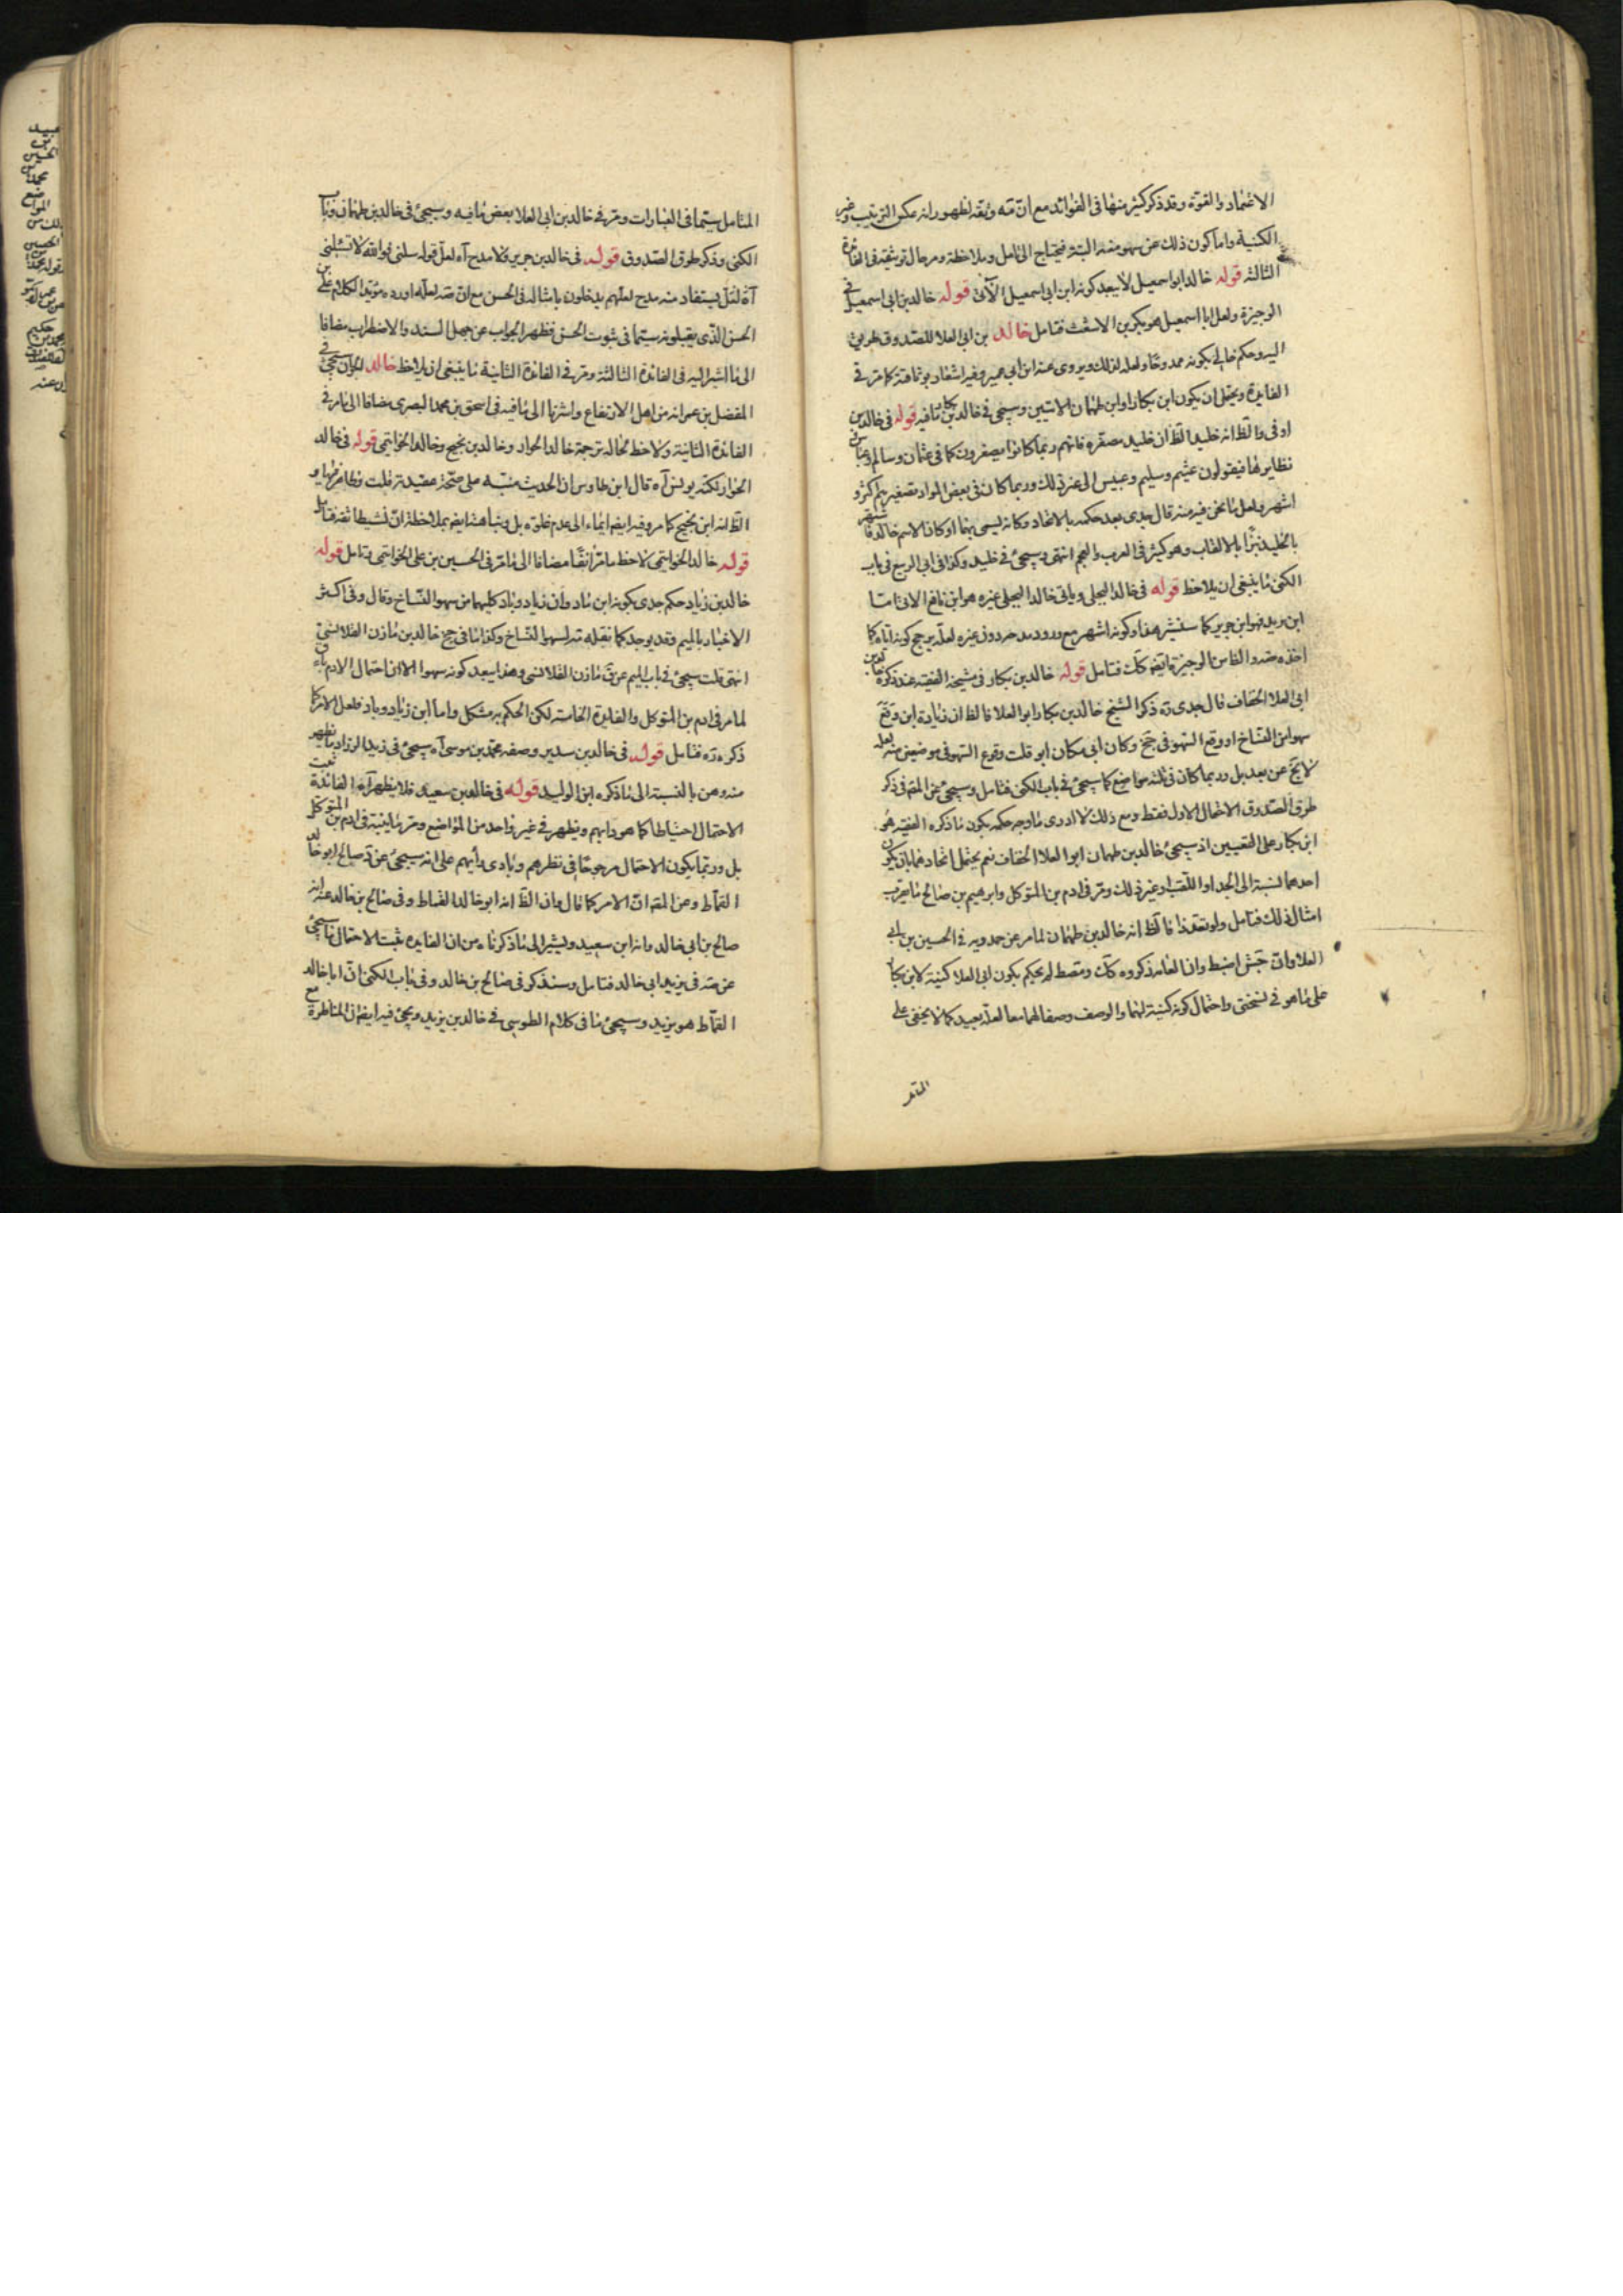 الاعتماد والقوة وقد ذكر كثير منها فى الفوائد مع ان مه وثقه لظهور انه عكس الترتيب وغير
الكنية واما كون ذلك عن سهو منه البتة فيحتاج الى تامل وملاحظة ومر حال توثيقه فى الفائدة
الثالثة قوله خالد ابو اسمعيل لا يبعد كونه ابن ابى اسمعيل الآتى قوله خالد بن ابى اسمعيل فى
الوجيزة ولعل ابا اسمعيل هو بكر بن الاشعث فتامل خالد بن ابى العلا للصدوق طريق
اليه وحكم خالى بكونه ممدوحا ولعله لذلك ويروى عنه ابن ابى عمير وفيه اشعار بوثاقته كما مر فى
الفايدة ويحتمل ان يكون ابن بكار او ابن طهمان الاتيين وسيجئ فى خالد بن بكار ما فيه قوله فى خالد بن
اوفى والظ انه خليد الظ ان خليد مصغره فانهم ربما كانوا يصغرون كما فى عثمان وسالم وعباس
نظايرها فيقولون عثيم وسليم وعبيس الى غير ذلك وربما كان فى بعض المواد تصغيرهم اكثر و
اشهر ولعل ما نحن فيه منه قال جدى بعد حكمه بالاتحاد وكانه يسمى بهما او كان الاسم خالد فاشتهر
بالخليد نبزا بالالقاب وهو كثير فى العرب والعجم انتهى وسيجئ فى خليد وكذا فى ابى الربيع فى باب
الكنى ما ينبغى ان يلاحظ قوله فى خالد البجلى وياتى خالد البجلى غيره هو ابن نافع الاتى اما
ابن يزيد فهو ابن جرير كما سنشير هذا وكونه اشهر مع ورود مدحه دون غيره لعله يرجح كونه اياه كما
اخذه مه والفاضل الوجيزة فتامل قوله خالد بن بكار فى مشيخة الفقيه عند ذكره خالد بن
ابى العلا الخفاف قال جدى ره ذكر الشيخ خالد بن بكار ابو العلا فالظ ان زيادة ابن وقع
سهوا من النساخ او وقع السهو فى جخ وكان ابى مكان ابو قلت وقوع السهو فى موضعين منه لعله
لا يخ عن بعد بل وربما كان فى ثلثة مواضع كما سيجئ فى باب الكنى فتامل وسيجئ عن المصنف فى ذكر
طرق الصدوق الاحتمال الاول فقط ومع ذلك لا ادرى ما وجه حكمه بكون ما ذكره الفقيه هو
ابن بكار على التعيين اذ سيجئ خالد بن طهمان ابو العلا الخفاف نعم يحتمل اتحادهما بان يكون
احدهما نسبة الى الجد او اللقب او غير ذلك ومر فى ادم بن المتوكل وابرهيم بن صالح ما يقرب
امثال ذلك فتامل ولو تعدد فالظ انه خالد بن طهمان لما مر عن حمدويه فى الحسين بن ابى
العلا وان جش اضبط
على ما هو فى نسختى واحتمال كونه كنية لهما والوصف وصفا لهما معا لعله بعيد كما لا يخفى على
المتامل
المتامل سيما فى العبارات ومر فى خالد بن ابى العلا بعض ما فيه وسيجئ فى خالد بن طهمان وباب
الكنى وذكر طرق الصدوق قوله فى خالد بن جرير ولا مدح آه لعل قوله سلنى فوالله لا تسئلنى
آه لئل يستفاد منه مدح لعلهم يدخلون بامثاله فى الحسن مع ان مه لعله اورده مؤيدا الكلام على بن
الحسن الذى يقبلونه سيما فى ثبوت الحسن فظهر الجواب عن جهل السند والاضطراب مضافا
الى ما اشير اليه فى الفائدة الثالثة ومر فى الفائدة الثانية ما ينبغى ان يلاحظ خالد الجوان سيجئ فى
المفضل بن عمر انه من اهل الارتفاع واشرنا الى ما فيه فى اسحق بن محمد البصرى مضافا الى ما مر فى
الفائدة الثانية ولاحظ محاله ترجمة خالد الجواز وخالد بن نجيح وخالد الخواتيمى قوله فى خالد
الجواز لكنه يونس آه قال ابن طاوس ان الحديث منبه على صحة عقيدته قلت وظاهرها و
الظ انه ابن نجيح كما مر وفيه ايضا ايماء الى عدم غلوه بل وبنا هنا ايضا بملاحظة ان نشيطا ثقة فتامل
قوله خالد الخواتيمى لاحظ ما مر انفا مضافا الى ما مر فى الحسين بن على الخواتيمى وتامل قوله
خالد بن زياد حكم جدى بكونه ابن ماد وان زياد وباد كليهما من سهو النساخ وقال وفى اكثر
الاخبار بالميم وقد يوجد كما نقله مه لسهو النساخ وكذا ما فى جخ خالد بن مازن القلانسى
انتهى قلت سيجئ فى باب الميم عن ق مازن القلانسى وهذا يبعد كونه سهوا الا ان احتمال الادم باق
لما مر فى ادم بن المتوكل والفايدة الخامسة لكن الحكم به مشكل واما ابن زياد وباد فلعل الامر كما
ذكره ره فتامل قوله فى خالد بن سدير وصفه محمد بن موسى آه سيجئ فى زيد الزراد ما يظهر
منه وهن بالنسبة الى ما ذكره ابن الوليد قوله فى خالد بن سعيد فلا يظهر آه الفائدة ثبت
الاحتمال احتياطا كما هو دابهم ويظهر فى غير واحد من المواضع ومر ما ينبه فى ادم بن المتوكل
بل وربما يكون الاحتمال مرجوحا فى نظرهم وينادى دأبهم على انه سيجئ عن د صالح ابو خالد
القماط وعن المصنف ان الامر كما قال وان الظ انه ابو خالد القماط وفى صالح بن خالد عنه انه
صالح بن ابى خالد وانه ابن سعيد ويشير الى ما ذكرناه من ان الفايدة ثبت الاحتمال ما سيجئ
عن مه فى يزيد ابى خالد فتامل وسنذكر فى صالح بن خالد وفى باب الكنى ان ابا خالد
القماط هو يزيد وسيجئ ما فى كلام الطوسى فى خالد بن يزيد ويجئ فيه ايضا فى المناظرة مع